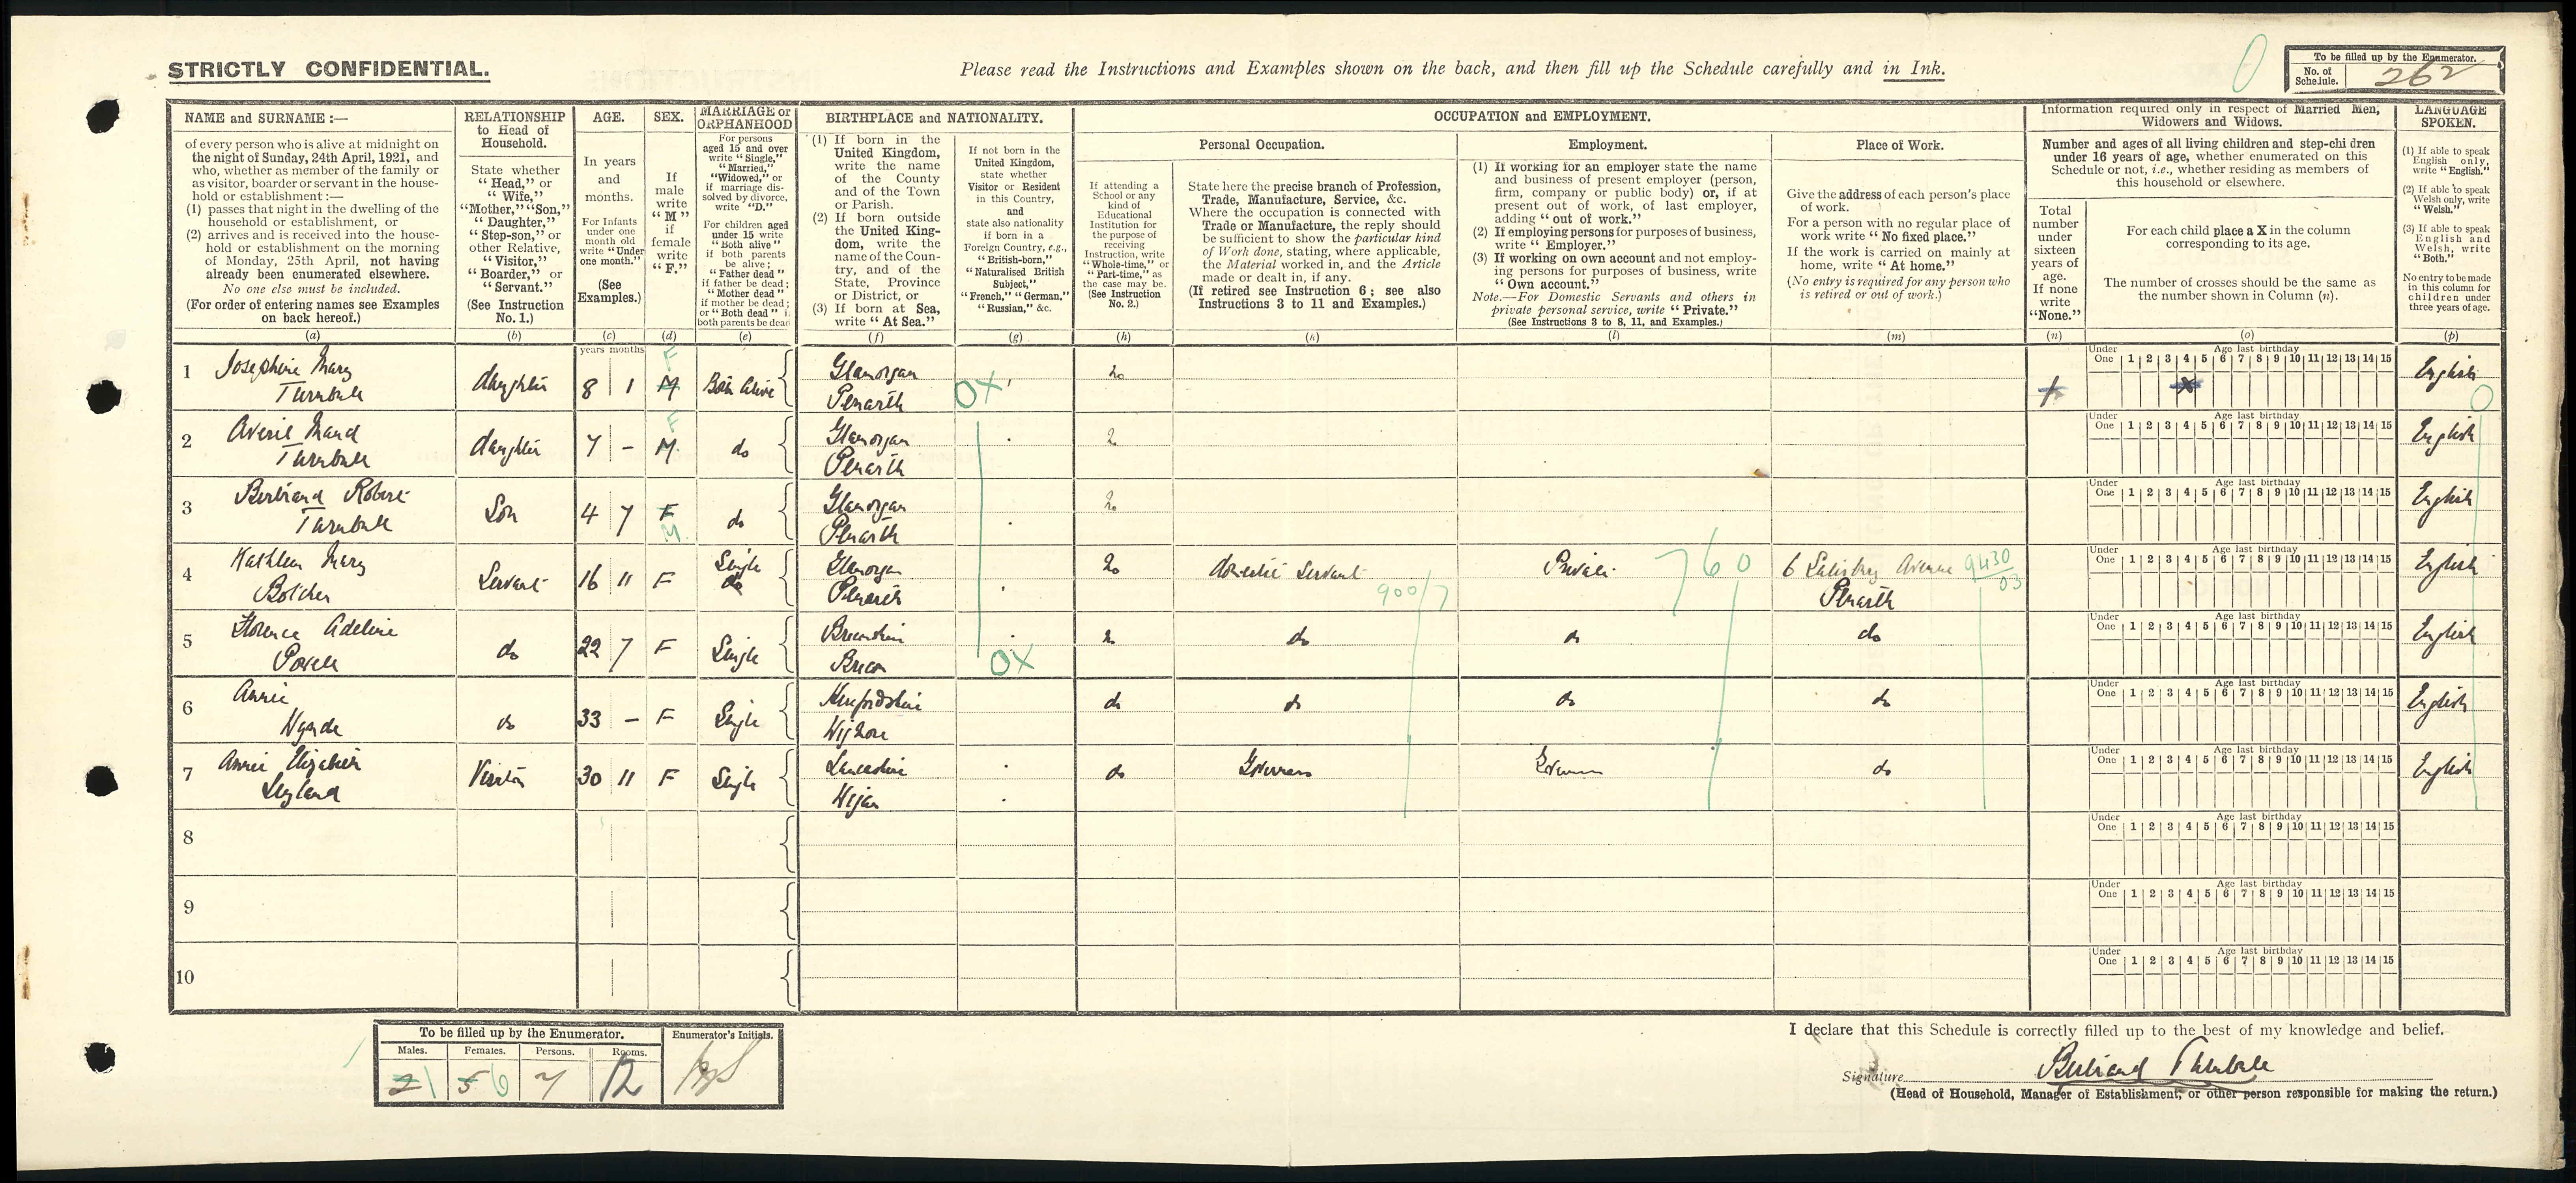 STRICTLY CONFIDENTIAL.
Please read the Instructions and Examples shown on the back, and then fill up the Schedule carefully and in Ink.
To be filled up by the Enumerator.
No. of Schedule. 262
NAME and SURNAME :—
of every person who is alive at midnight on
the night of Sunday, 24th April, 1921, and
who, whether as member of the family or
as visitor, boarder or servant in the house-
hold or establishment :—
(1) passes that night in the dwelling of the
household or establishment, or
(2) arrives and is received into the house-
hold or establishment on the morning
of Monday, 25th April, not having
already been enumerated elsewhere.
No one else must be included.
(For order of entering names see Examples
on back hereof.)
(a)
RELATIONSHIP
to Head of
Household.
State whether
“Head,” or
“Wife,”
“Mother,” “Son,”
“Daughter,”
“Step-son,” or
other Relative,
“Visitor,”
“Boarder,” or
“Servant.”
(See Instruction
No. 1.)
(b)
AGE.
In years
and
months.
For Infants
under one
month old
write “Under
one month.”
(See
Examples.)
(c)
SEX.
If
male
write
“M”
if
female
write
“F.”
(d)
MARRIAGE or
ORPHANHOOD
For persons
aged 15 and over
write “Single,”
“Married,”
“Widowed,” or
if marriage dis-
solved by divorce,
write “D.”
For children aged
under 15 write
“Both alive”
if both parents
be alive ;
“Father dead”
if father be dead ;
“Mother dead”
if mother be dead ;
or “Both dead” i
both parents be dead
(e)
BIRTHPLACE and NATIONALITY.
(1) If born in the
United Kingdom,
write the name
of the County
and of the Town
or Parish.
(2) If born outside
the United King-
dom, write the
name of the Coun-
try, and of the
State, Province
or District, or
(3) If born at Sea,
write “At Sea.”
(f)
If not born in the
United Kingdom,
state whether
Visitor or Resident
in this Country,
and
state also nationality
if born in a
Foreign Country, e.g.,
“British-born,”
“Naturalised British
Subject,”
“French,” “German,”
“Russian,” &c.
(g)
OCCUPATION and EMPLOYMENT.
If attending a
School or any
kind of
Educational
Institution for
the purpose of
receiving
Instruction, write
“Whole-time,” or
“Part-time,” as
the case may be.
(See Instruction
No. 2.)
(h)
Personal Occupation.
State here the precise branch of Profession,
Trade, Manufacture, Service, &c.
Where the occupation is connected with
Trade or Manufacture, the reply should
be sufficient to show the particular kind
of Work done, stating, where applicable,
the Material worked in, and the Article
made or dealt in, if any.
(If retired see Instruction 6 ; see also
Instructions 3 to 11 and Examples.)
(k)
Employment.
(1) If working for an employer state the name
and business of present employer (person,
firm, company or public body) or, if at
present out of work, of last employer,
adding “out of work.”
(2) If employing persons for purposes of business,
write “Employer.”
(3) If working on own account and not employ-
ing persons for purposes of business, write
“Own account.”
Note.—For Domestic Servants and others in
private personal service, write “Private.”
(See Instructions 3 to 8, 11, and Examples.)
(l)
Place of Work.
Give the address of each person's place
of work.
For a person with no regular place of
work write “No fixed place.”
If the work is carried on mainly at
home, write “At home.”
(No entry is required for any person who
is retired or out of work.)
(m)
Information required only in respect of Married Men,
Widowers and Widows.
Number and ages of all living children and step-chi dren
under 16 years of age, whether enumerated on this
Schedule or not, i.e., whether residing as members of
this household or elsewhere.
Total
number
under
sixteen
years of
age.
If none
write
“None.”
(n)
For each child place a X in the column
corresponding to its age.
The number of crosses should be the same as
the number shown in Column (n).
(o)
LANGUAGE
SPOKEN.
(1) If able to speak
English only,
write “English.”
(2) If able to speak
Welsh only, write
“Welsh.”
(3) If able to speak
English and
Welsh, write
“Both.”
No entry to be made
in this column for
children under
three years of age.
(p)
years months
Under One 1 2 3 4 5 6 7 8 9 10 11 12 13 14 15
Age last birthday
1 Josephine Mary Turnbull daughter 8 1 M F Both Alive Glamorgan Penarth OX no X English
2 Averil Maud Turnbull daughter 7 – M F do Glamorgan Penarth English
3 Bertrand Robert Turnbull Son 4 7 F M do Glamorgan Penarth English
4 Kathleen Mary Botcher Servant 16 11 F Single do Glamorgan Penarth no domestic Servant 900/7 Private 760 6 Salisbury Avenue Penarth 9430/03 English
5 Florence Adeline Powell do 22 7 F Single Breconshire Brecon OX do do do English
6 Annie do 33 – F Single Herefordshire do do do do English
7 Annie Elizabeth Leyland Visitor 30 11 F Single Lancashire Wigan do Governess do English
8
9
10
To be filled up by the Enumerator.
Males. Females. Persons. Rooms.
2 1 5 6 7 12
Enumerator's Initials.
I declare that this Schedule is correctly filled up to the best of my knowledge and belief.
Signature Bertrand Turnbull
(Head of Household, Manager of Establishment, or other person responsible for making the return.)